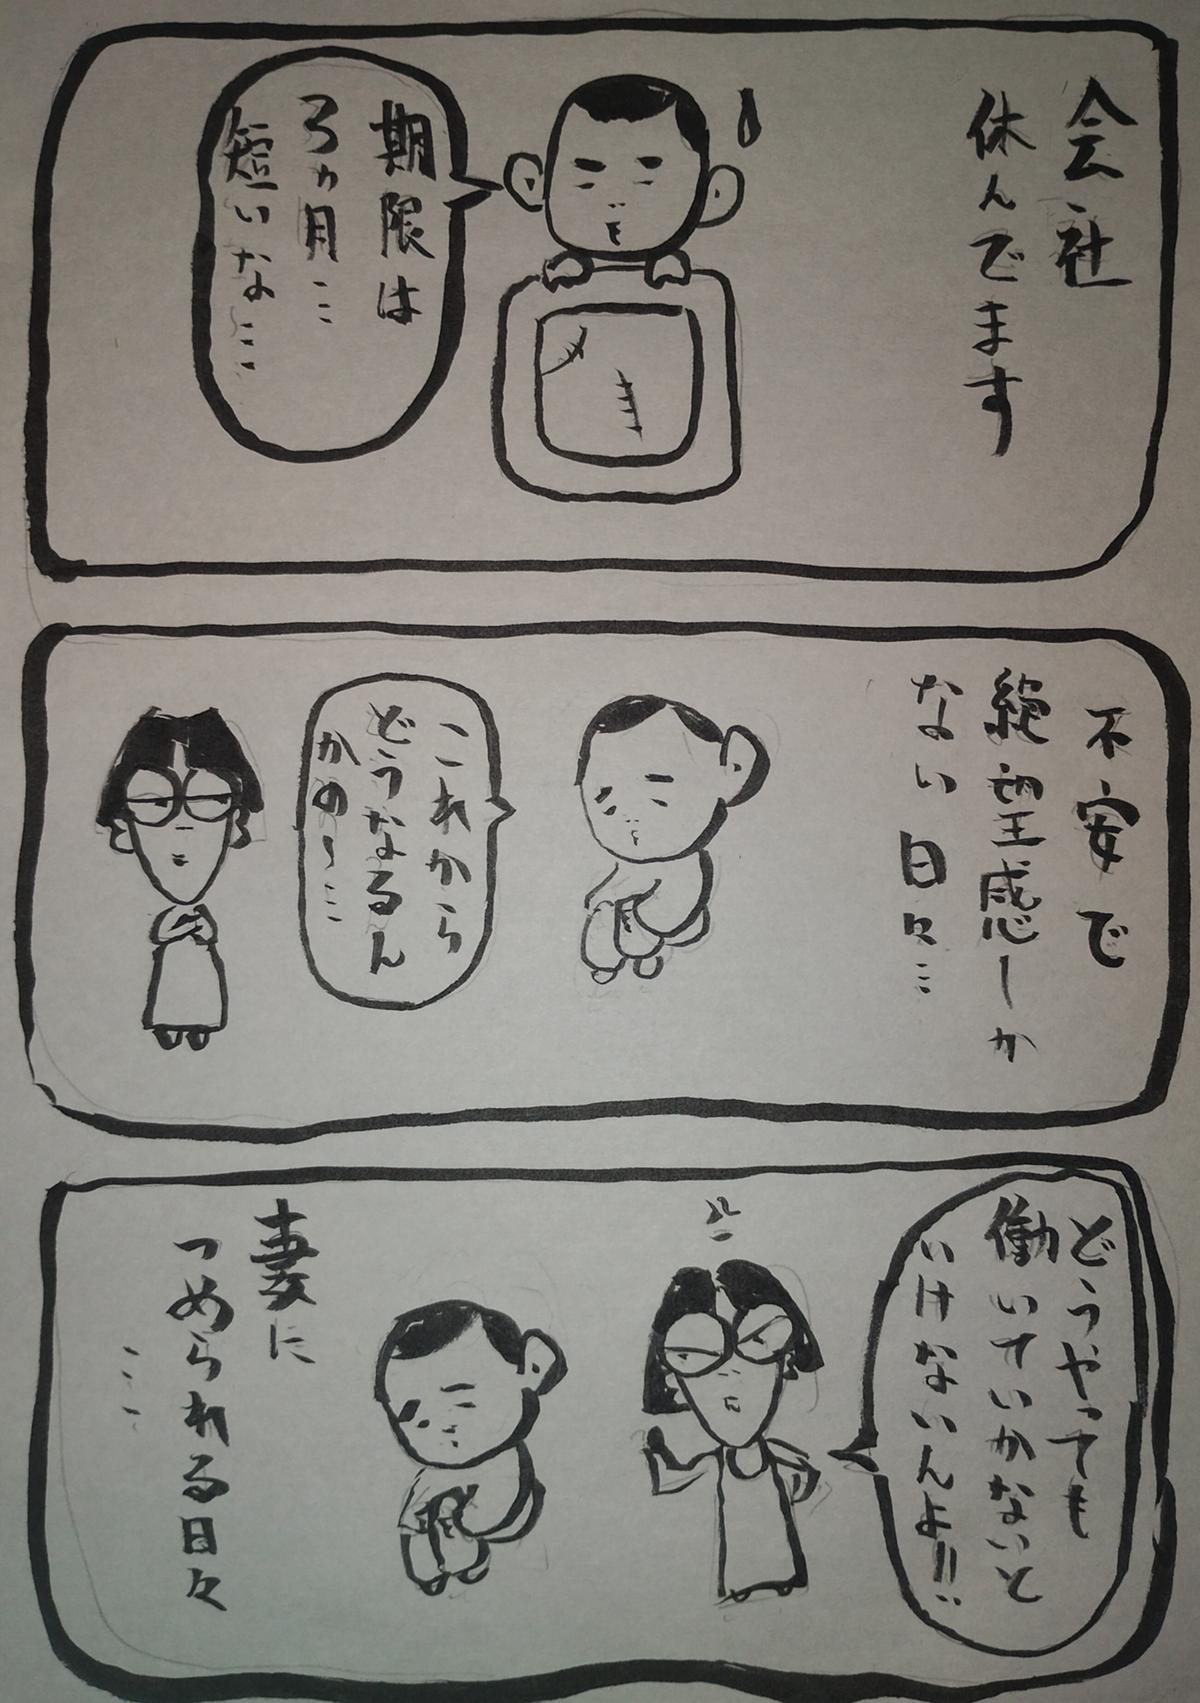 会社
休んでます
期限は
3ヵ月…
短いな……
不安で
絶望感しか
ない日々…
これから
どうなるん
かの〜…
どうやっても
働いていかないと
いけないんよ!!
妻に
つめられる日々
……